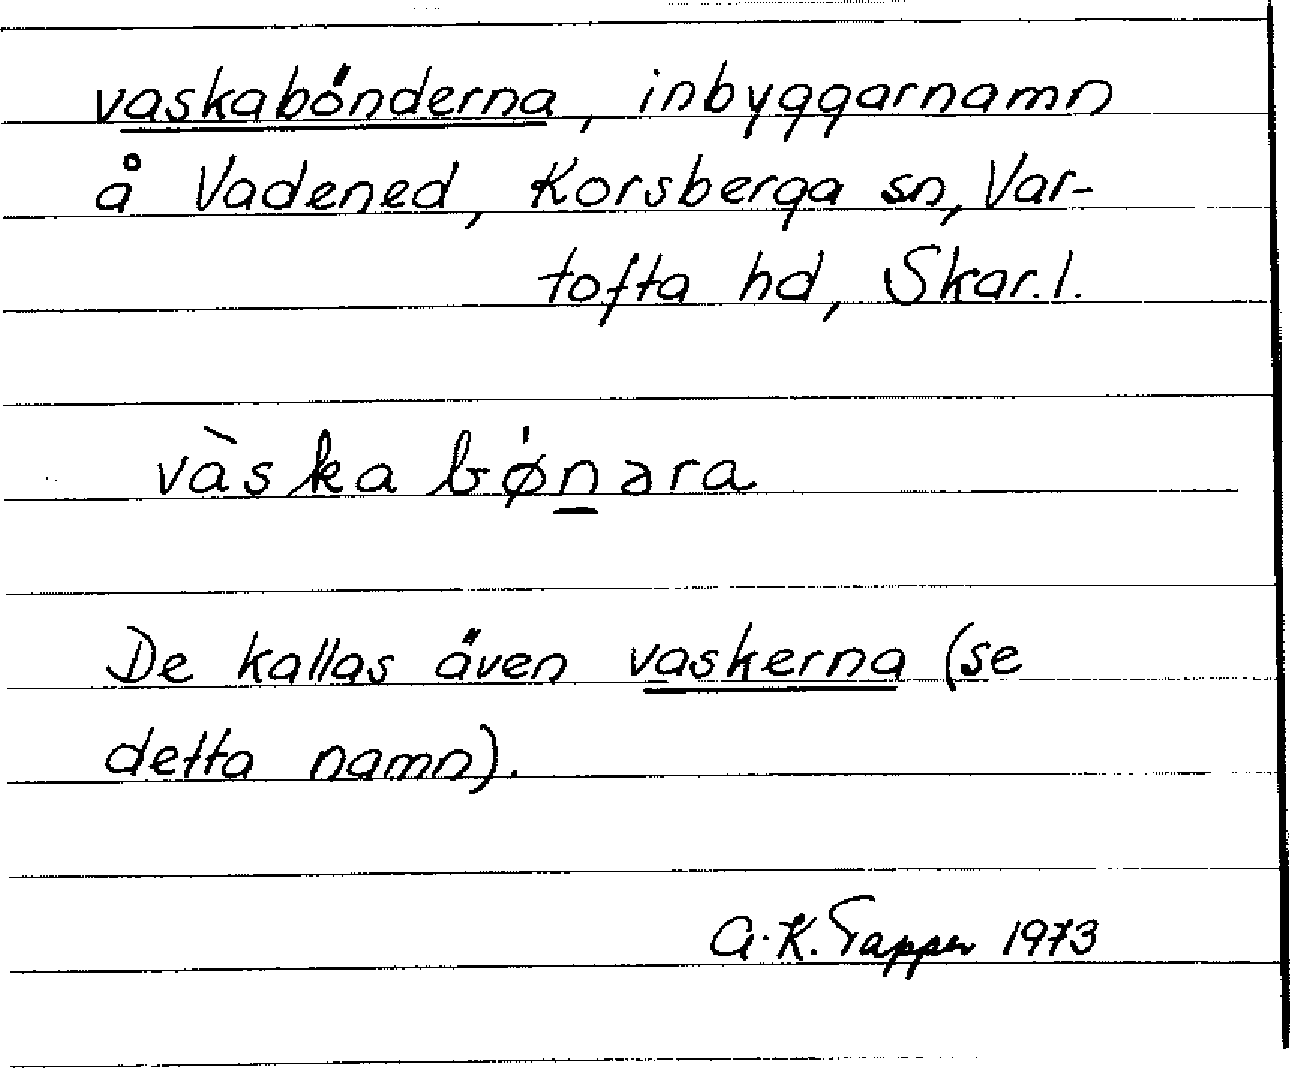 vaskabönderna, inbyggarnamn
å Vadened, Korsberga sn, Var-
tofta hd, Skar. l.
vàska bø̍n̲əra
De kallas även vaskerna (se
detta namn).
A.K. Tapper 1973